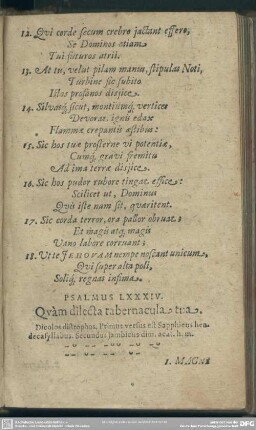 12. Qvi corde secum crebro jactant effero,
Se Dominos etiam
Tui futuros atrii.
13. At tu, velut pilam manin, stipulas Noti,
Turbine sic subito
Illos profanos disjice.
14. Silvamq́; sicut, montiumq́; vertices
Devorat ignis edax
Flammæ crepantis æstibus:
15. Sic hos tuæ prosterne vi potentiæ,
Cumq́; gravi fremitu
Ad ima terræ disjice.
16. Sic hos pudor rubore tingat, effice:
Scilicet ut, Dominus
Qvis iste nam sit, quæritent.
17. Sic corda terror, ora pallor obruat:
Et magis atq́; magis
Vano labore corruant;
18. Ut te JEHOVAM nempe noscant unicum,
Qui super alta poli,
Soliq́; regnas infima.
PSALMUS LXXXIV.
Qvàm dilecta tabernacula tua.
Dicolos distrophos. Primus versus est Sapphicus hen
decasyllabus. Secundus Jambicus dim. acat. h. m.
1. MAGNE